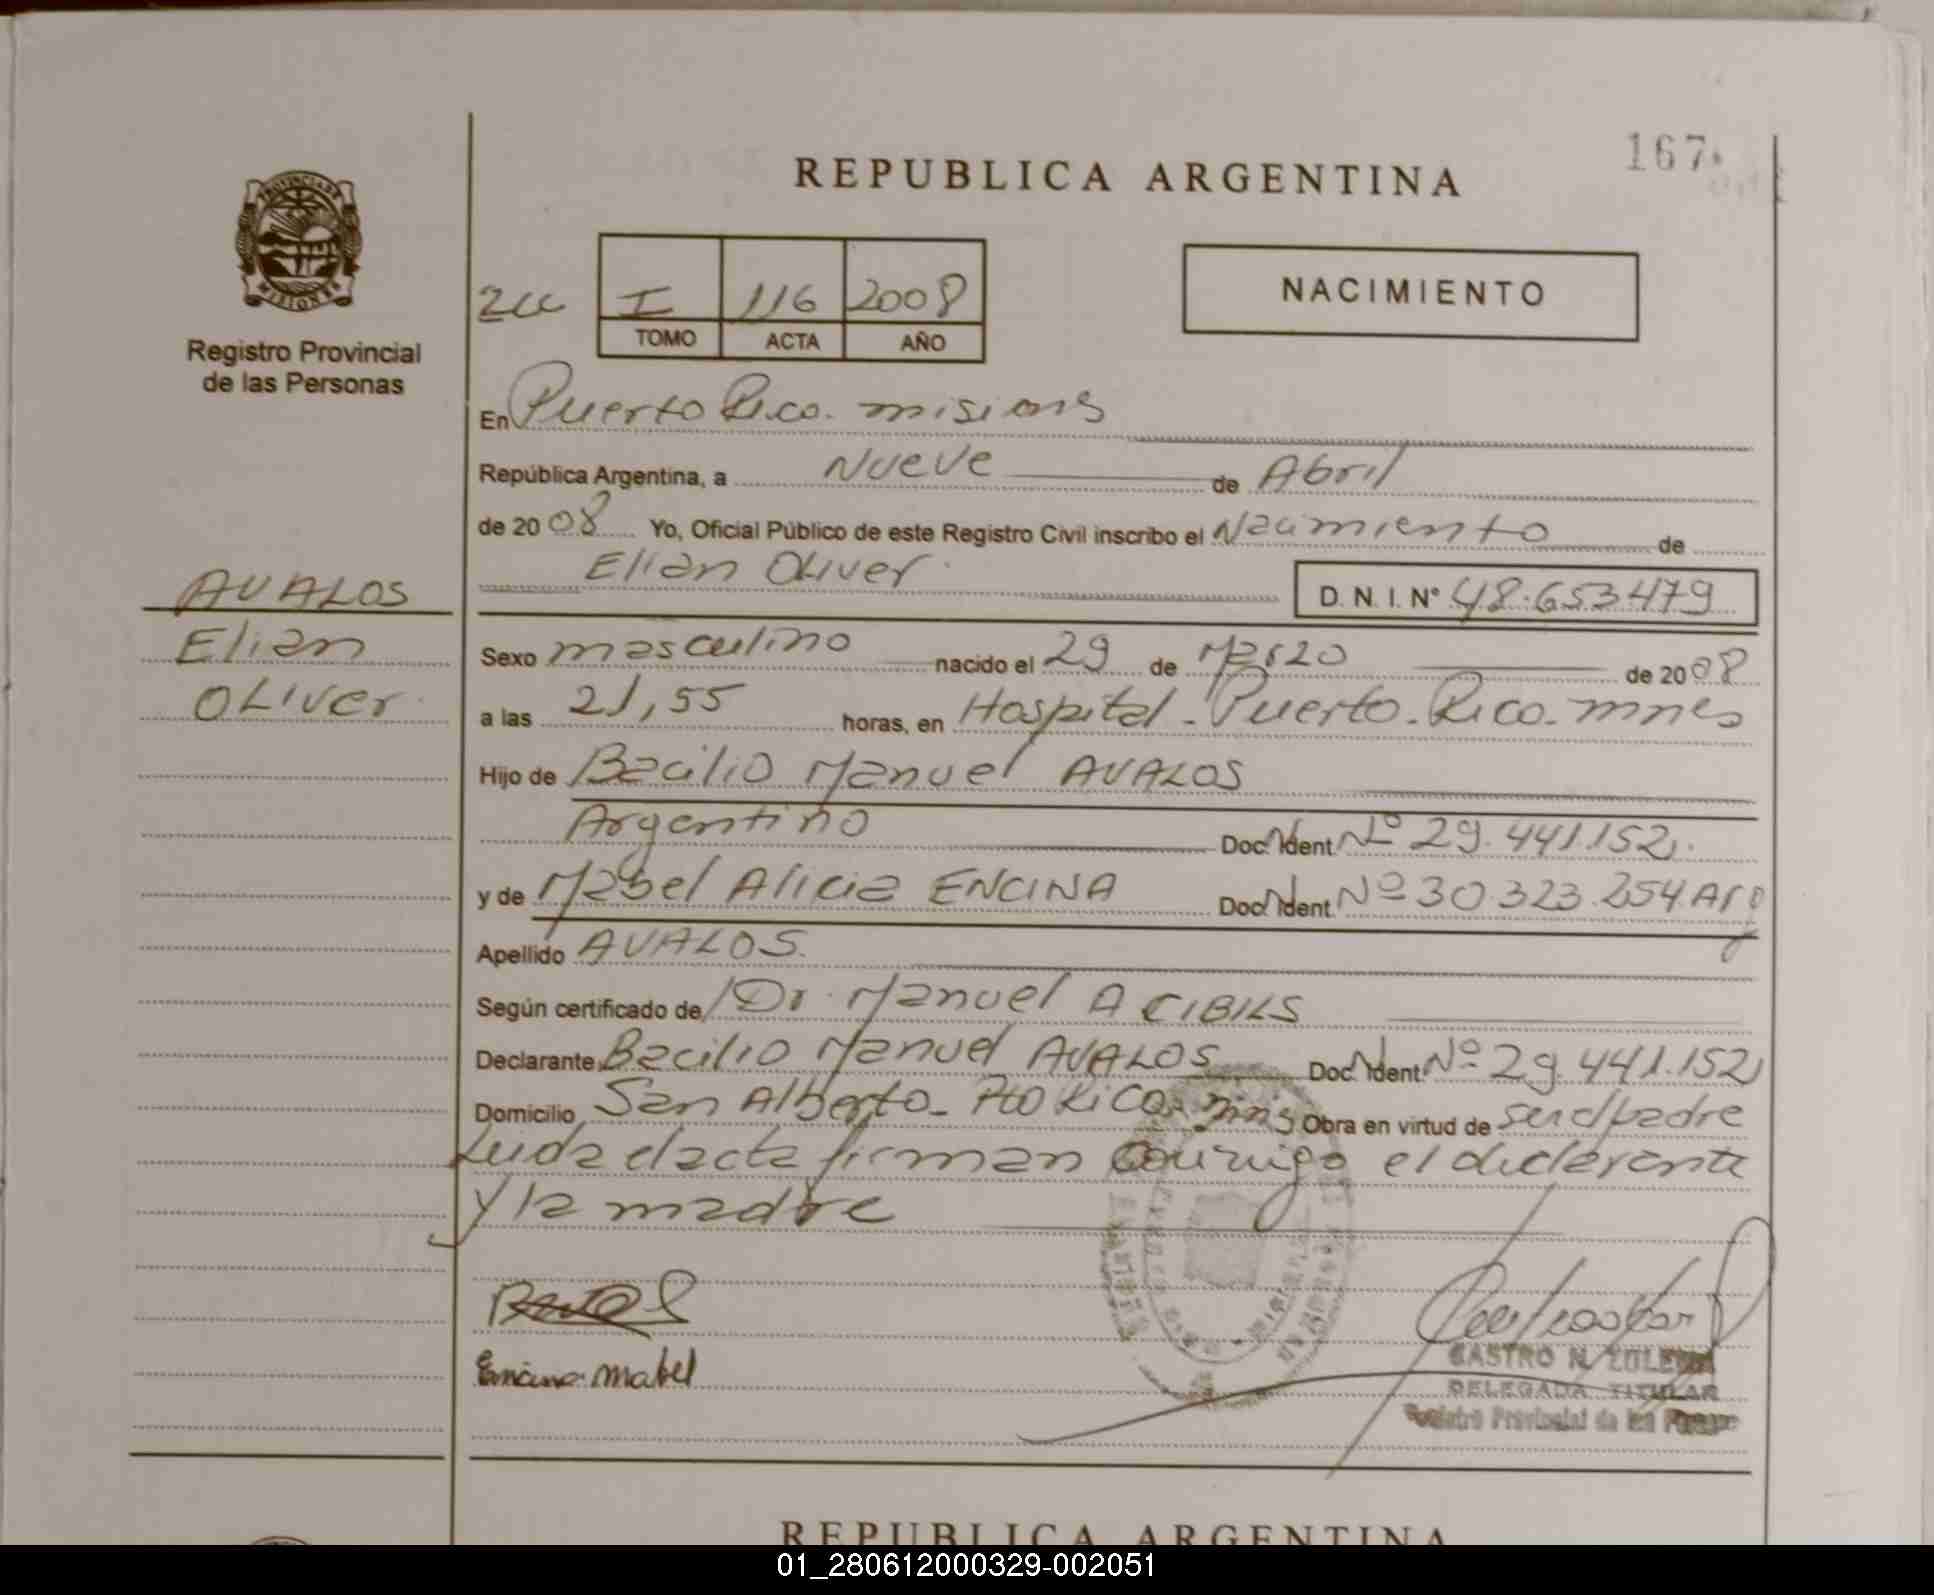 167
REPUBLICA ARGENTINA
PROVINCIA DE MISIONES
Registro Provincial
de las Personas
I 116 2008
TOMO ACTA AÑO
NACIMIENTO
En Puerto Rico. misiones
República Argentina, a Nueve de Abril
de 2008 Yo, Oficial Público de este Registro Civil inscribo el Nacimiento de
Elian Oliver.
D. N. I. N° 48.653479
AVALOS
Elian
OLiver.
Sexo masculino nacido el 29 de Marzo de 2008
a las 21,55 horas, en Hospital - Puerto - Rico - mnes
Hijo de Bacilio Manuel AVALOS
Argentino Doc. Ident. Nº 29.441.152.
y de Mabel Alicia ENCINA Doc. Ident. Nº 30.323.254. Arg
Apellido AVALOS.
Según certificado de Dr. Manuel A CIBILS
Declarante Bacilio Manuel AVALOS Doc. Ident. Nº 29.441.152
Domicilio San Alberto - Pto Rico - mns Obra en virtud de ser el padre
Leida el acta firman conmigo el declarante
y la madre
Encina Mabel
CASTRO N. ZULEMA
DELEGADA TITULAR
Registro Provincial de las Personas
REPUBLICA ARGENTINA
01_280612000329-002051